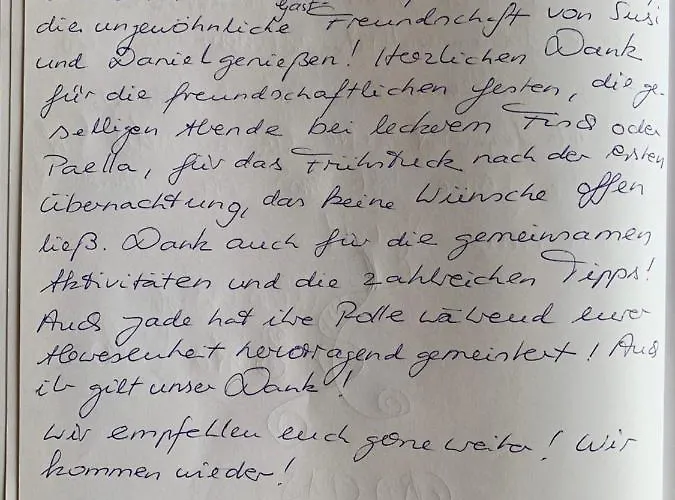 Gast-
die ungewöhnliche Freundschaft von Susi
und Daniel genießen! Herzlichen Dank
für die freundschaftlichen Gesten, die ge-
selligen Abende bei leckerem Fisch oder
Paella, für das Frühstück nach der ersten
Übernachtung, das keine Wünsche offen
ließ. Dank auch für die gemeinsamen
Aktivitäten und die zahlreichen Tipps!
Auch Jade hat ihre Rolle während eurer
Abwesenheit hervorragend gemeistert! Auch
ihr gilt unser Dank!
Wir empfehlen euch gerne weiter! Wir
kommen wieder!